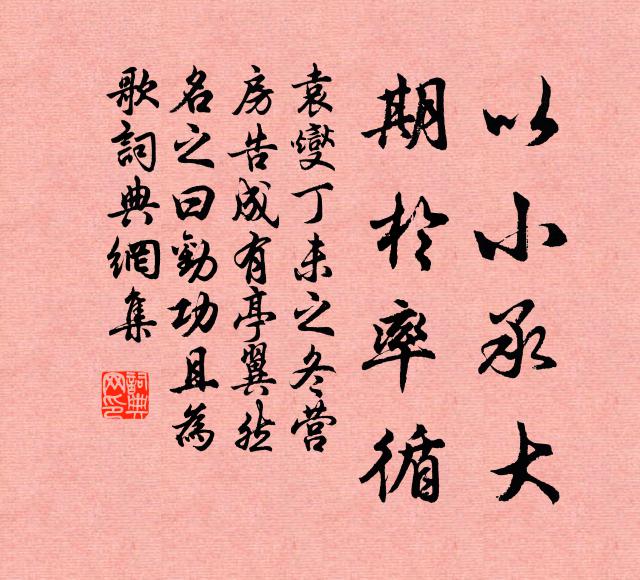 以小承大
期於率循
袁燮丁未之冬营
房告成有亭翼然
名之曰勸功且為
歌詞典網集
詞典網印